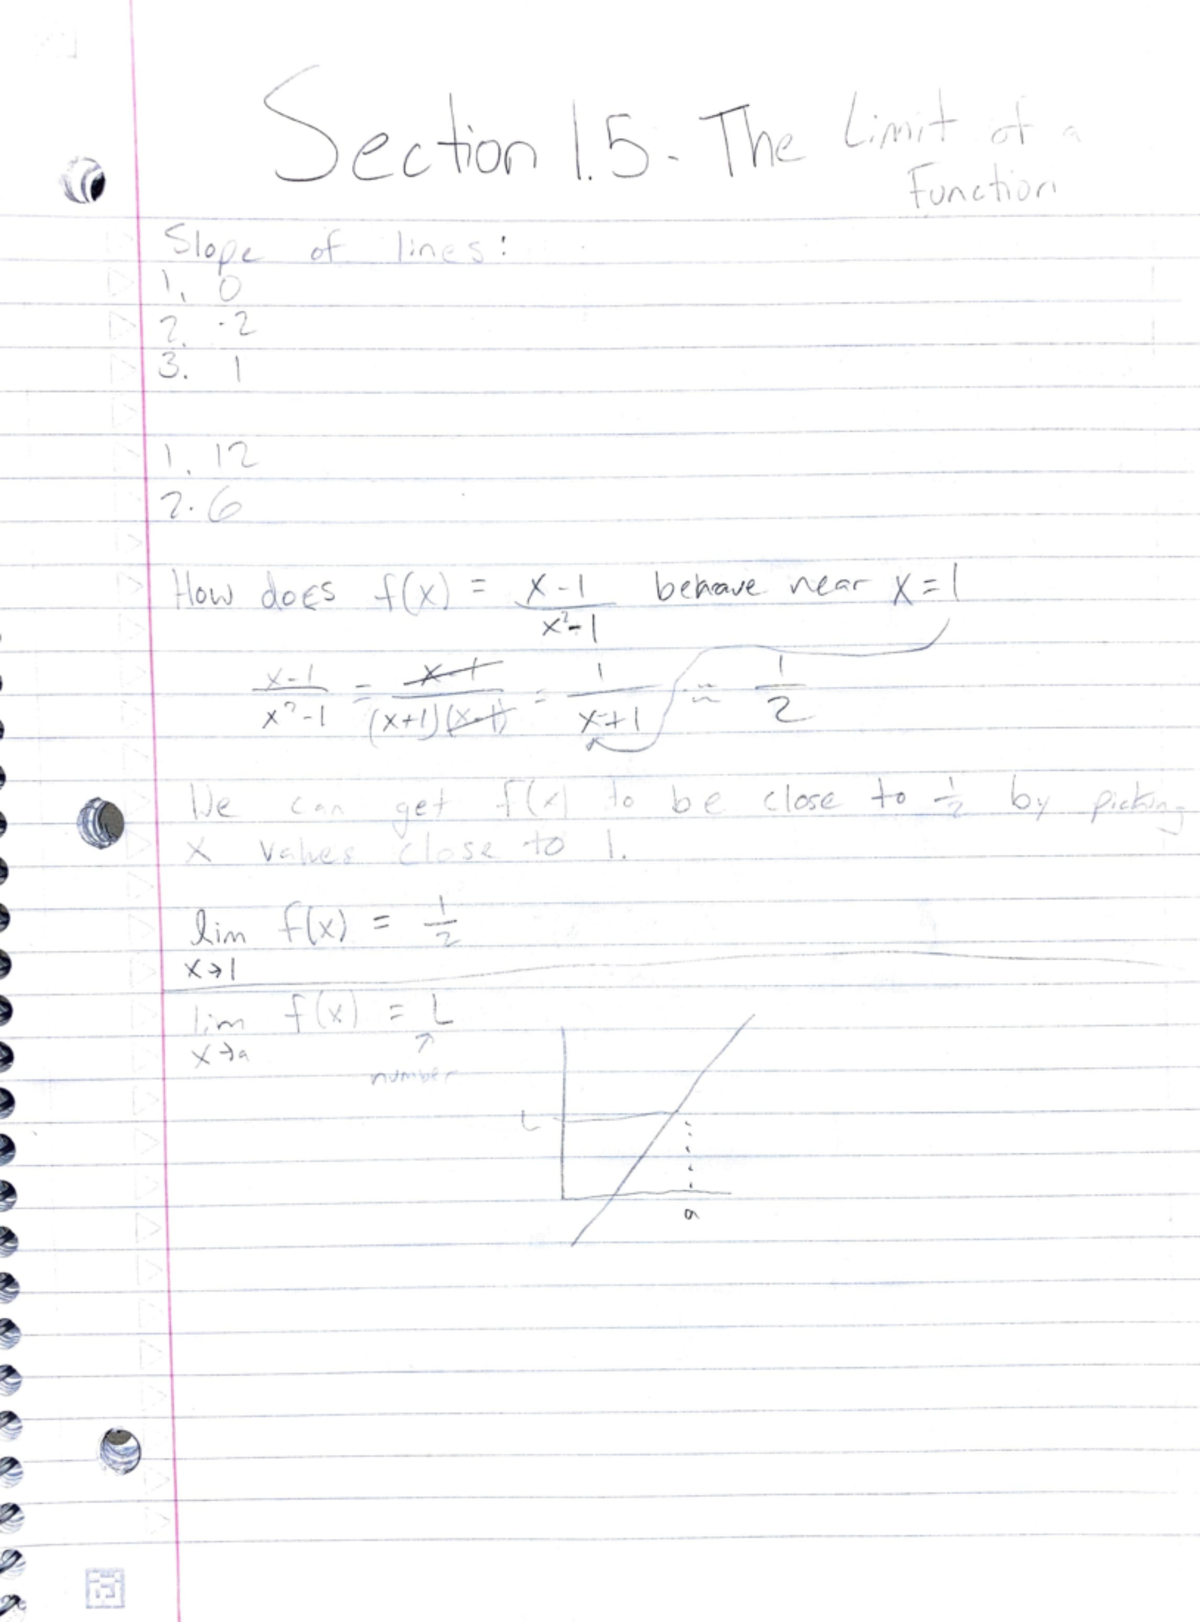 Section 1.5 - The Limit of a
Function
Slope of lines:
1. 0
2. -2
3. 1
1. 12
2. 6
How does f(x) = x-1 / x²-1 behave near x=1
x-1 / x²-1 = x-1 / (x+1)(x-1) = 1 / x+1 ≈ 1/2
We can get f(x) to be close to 1/2 by picking
x values close to 1.
lim f(x) = 1/2
x→1
lim f(x) = L
x→a
number
L
a